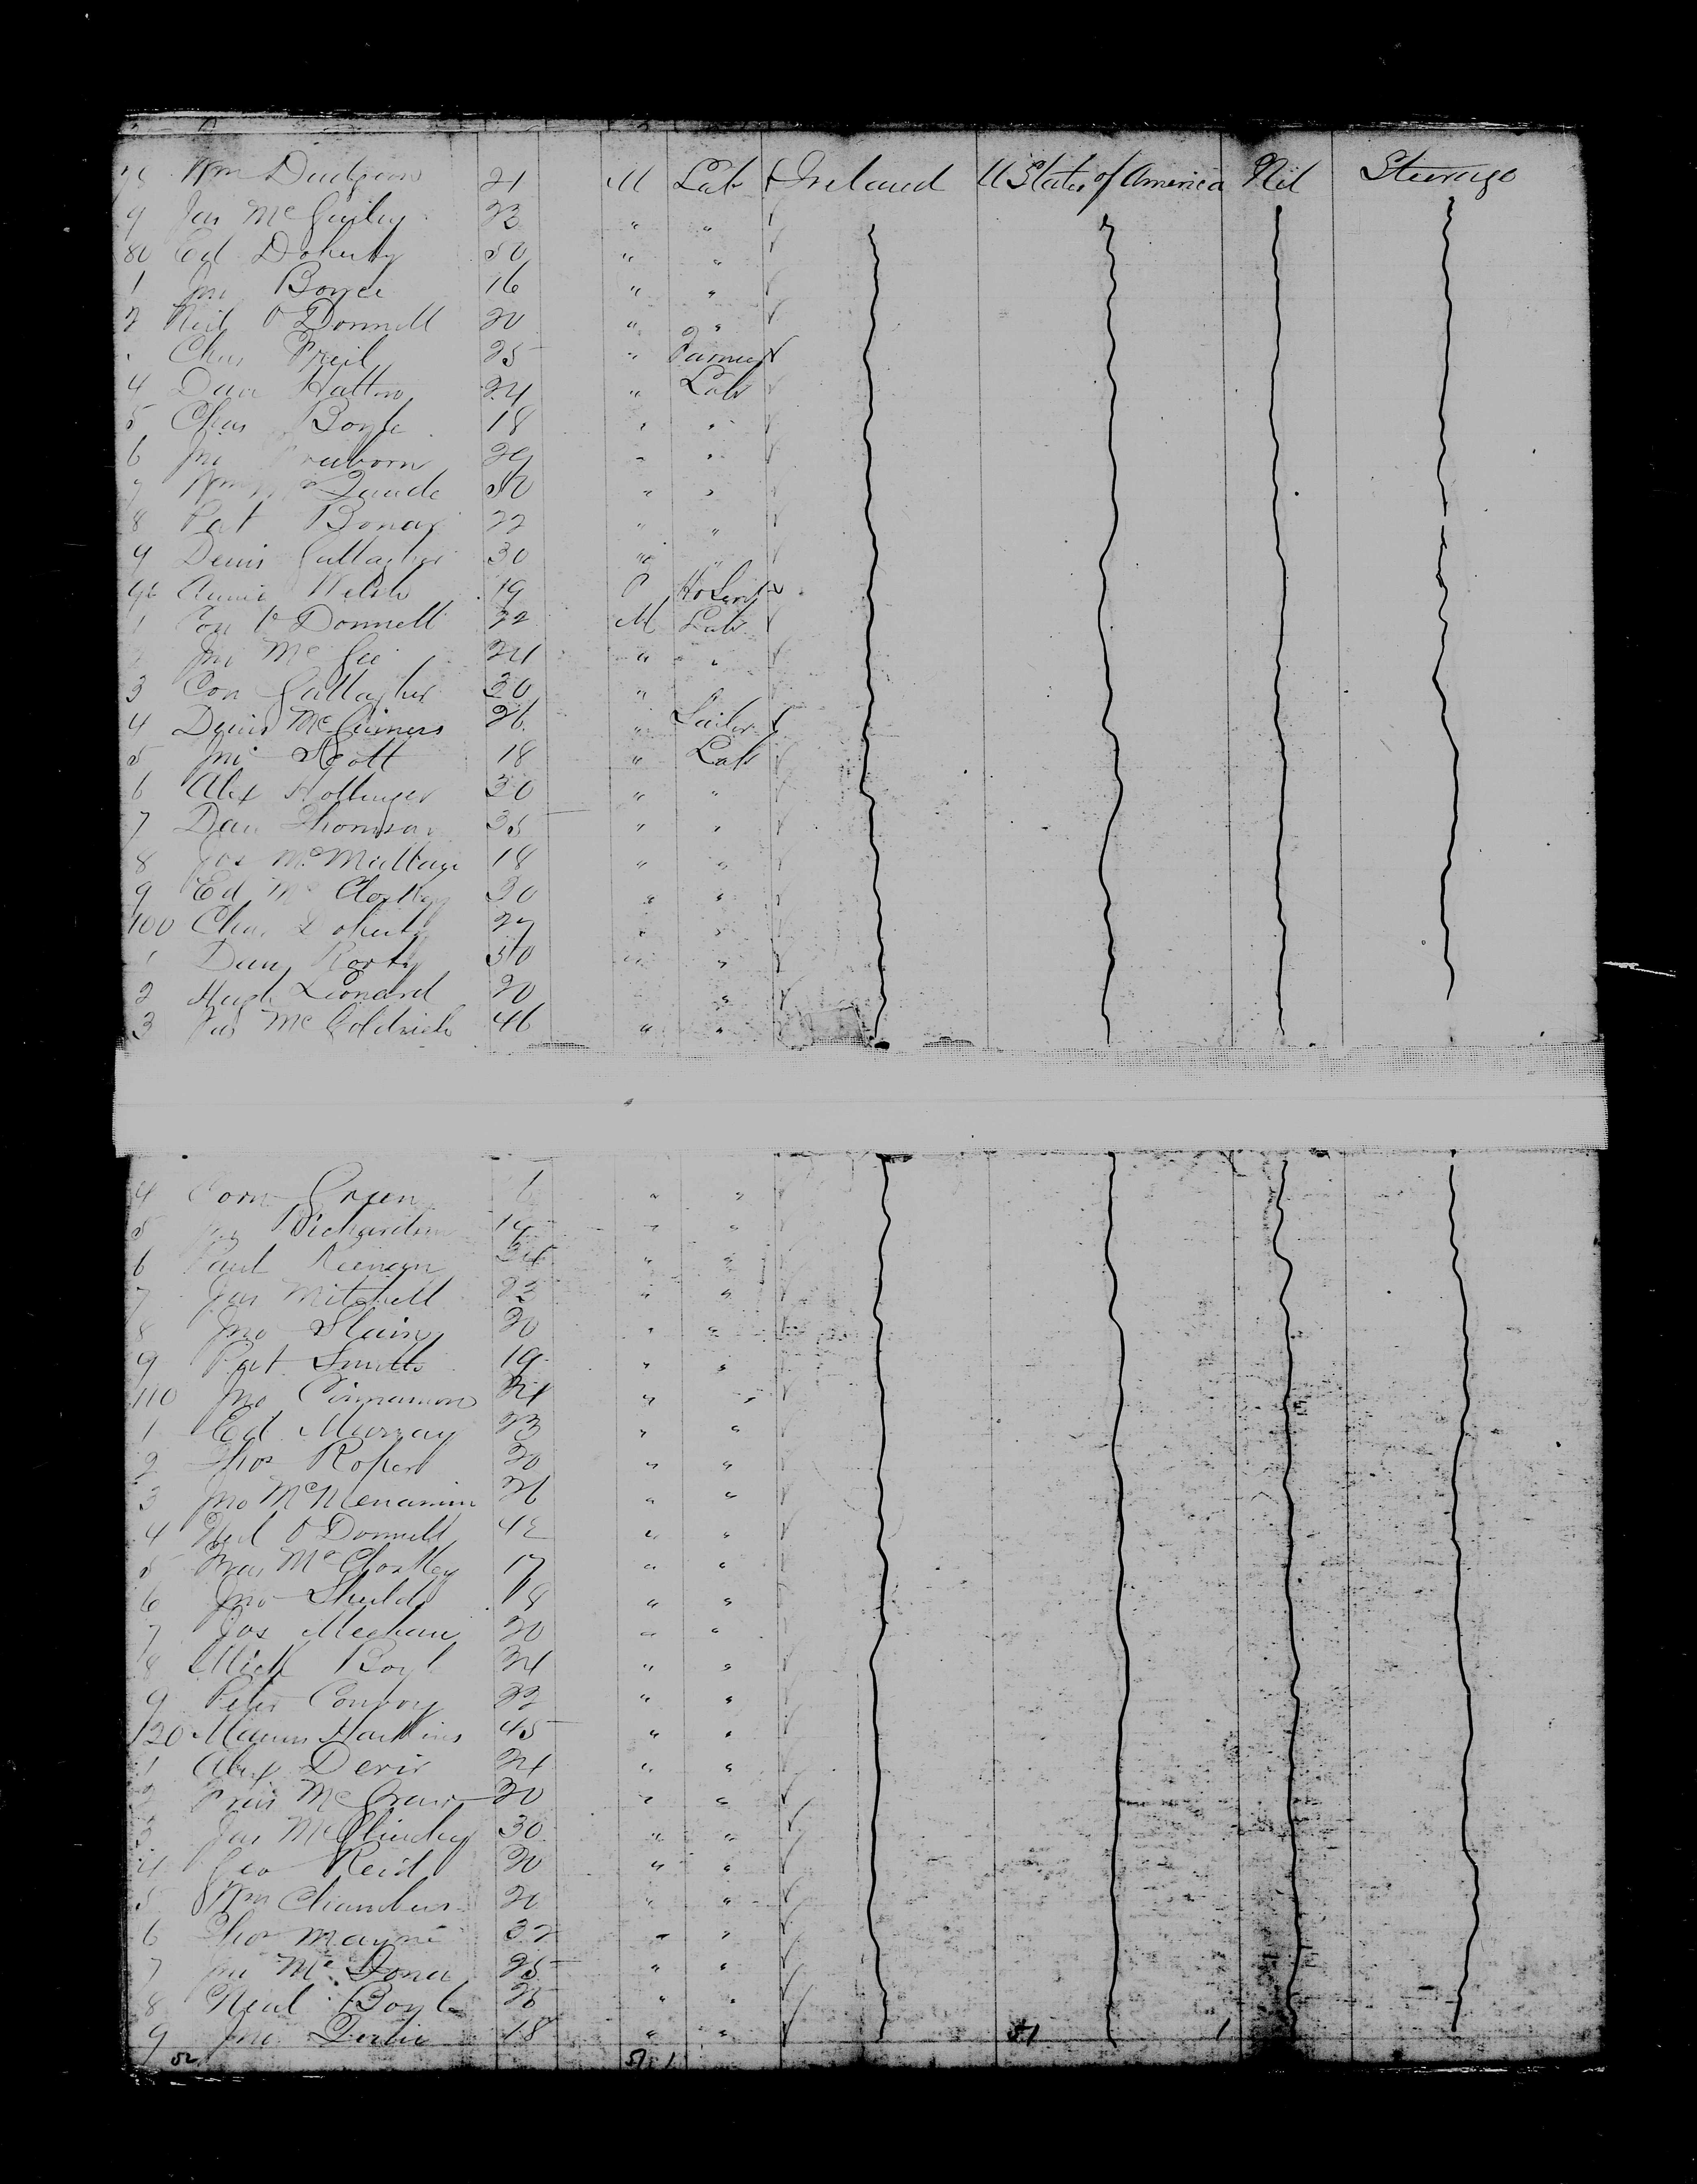 78 Wm Dudgeon 21 M Lab Ireland U States of America Nil Steerage
9 Jas McGinley 23 " "
80 Ed Doherty 50 " "
1 Jno Boyce 16 " "
2 Neil O'Donnell 20 " "
Chas Freil 25 " Farmer
4 Dan Hatton 24 " Lab
5 Chas Boyle 18 " "
6 Jno 29 " "
7 Wm Mc 50 " "
8 Pat Bonar 22 " "
9 Denis Gallagher 30 " "
90 Annie Welsh 19 F Ho Servt
1 Con O'Donnell 22 M Lab
2 Jno McGee 24 " "
3 Con Gallagher 30 "
4 Denis Mc 26 " Sailor
5 Jno Scott 18 " Lab
6 Alex 30 " "
7 Dan Thomson 35 " "
8 Jos McMullan 18 " "
9 Ed McCloskey 30 " "
100 Chas Doherty 27 " "
1 Dan Rorty 50 " "
2 Hugh Leonard 20 "
3 Jas McGoldrick 46 " "
4 Corn Green " "
5 Richardson " "
6 Paul Keenan 34 " "
7 Jas Mitchell 23 " "
8 Jno 20 " "
9 Pat Smith 19 " "
110 Jno Cinnamon 24 " "
1 Ed Murray 23 " "
2 Thos Roper 20 " "
3 Jno McMenamin 26 " "
4 Neil O'Donnell 42 " "
5 Fras McCloskey 17 " "
6 Jno Sheild 18 " "
7 Jos Meehan 20 " "
8 Mick Boyl 24 " "
9 Peter Conroy 22 " "
120 Manus Harkins 45 " "
1 Alex Devir 24 " "
2 Fras McGraw 20 " "
3 Jas McGlinchey 30 " "
4 Geo Reid 20 " "
5 Wm Chambers 20 " "
6 Thos Mayne 32 " "
7 Jno Mc 25 " "
8 Neal Boyle 25 " "
9 Jno 18 " " 51 1
52 51 1